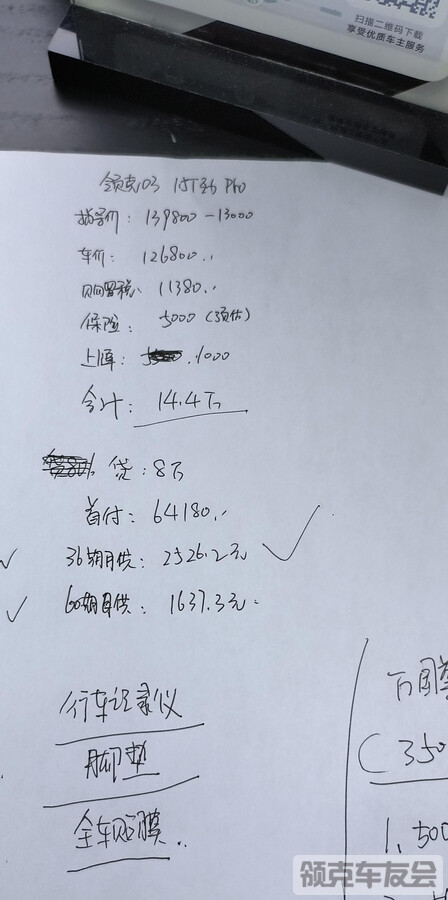 扫描二维码下载
享受优质车主服务
领克03 1.5T劲Pro
指导价: 139800-13000
车价: 126800..
购置税: 11380..
保险: 5000(预估)
上牌: 1000
合计: 14.4万
贷: 8万
首付: 64180..
36期月供: 2526.2元
60期月供: 1637.3元
行车记录仪
脚垫
全车贴膜..
万
(350
1.500
领克车友会